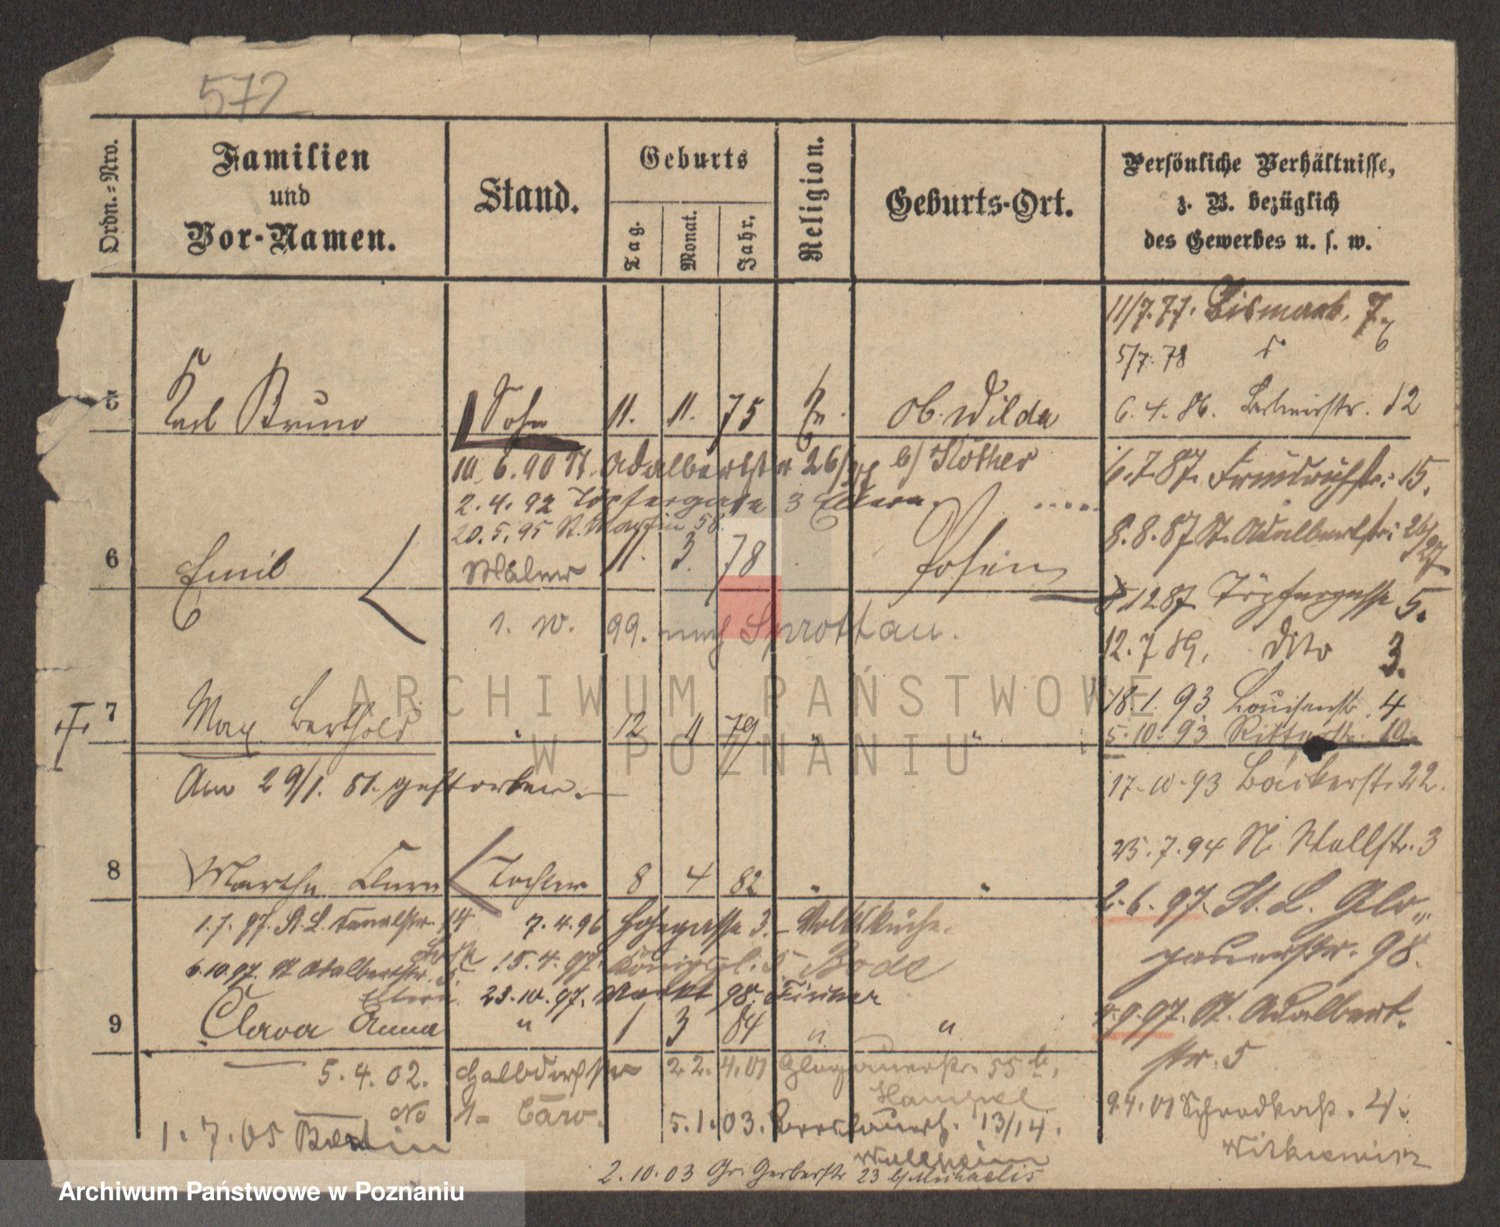 572
Ordn.-Nro.
Familien
und
Vor-Namen.
Stand.
Geburts
Tag.
Monat.
Jahr.
Religion.
Geburts-Ort.
Persönliche Verhältnisse,
z. B. bezüglich
des Gewerbes u. s. w.
11/7.77. Bismark. 7
5/7.78
5 Karl Bruno Sohn 11. 11. 75 Ob. Wilda
6.4.86. 12
10.6.90 St. Adalbertstr 26/27 b/ Köther
6.7.87. Friedrichstr. 15.
2.4.92 Töpfergasse 3 Eltern.
20.5.95 St. Martin 58.
8.8.87 St. Adalbertstr. 26/27
6 Emil Maler 11. 3. 78 Posen
8.12.87 Töpfergasse 5.
1. 10. 99. nach Sprottau.
12.7.89. dito 3.
18.1.93 Louisenstr. 4
7 Max Berthold " 12 11 79 " "
5.10.93 Ritterstr. 10.
Am 29/1. 81. gestorben.
17.10.93 Bäckerstr. 22.
25.7.94 N. Wallstr. 3
8 Martha Clara Tochter 8 4 82 " "
2.6.97. St. L. Glo-
gauerstr. 98.
1.7.97. St. L. Kanalstr. 14
7.4.96 Hohegasse 3. Volksküche.
6.10.97. St Adalbertstr. 5
Eltern
15.4.97. Königspl. 5. Bode
23.10.97. Markt 98.
9 Clara Anna " 1 3 84 " "
4.9.97. St. Adalbert-
str. 5
5.4.02. Halbdorfstr
No 1- Caro.
2.2.4.01 Glogauerstr. 55
Hampel
9.4.01 4.
Witkiewicz
1.7.05 Berlin
5.1.03. 13/14.
2.10.03 Gr. Gerberstr 23 b/ Michaelis
ARCHIWUM PAŃSTWOWE
W POZNANIU
Archiwum Państwowe w Poznaniu